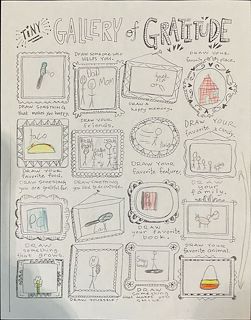 TINY GALLERY of GRATITUDE
DRAW SOMETHING
that makes you happy.
DRAW someone who
HELPS YOU.
Mom
DRAW a
happy memory.
DRAW YOUR
favorite place.
taco
DRAW YOUR
favorite food.
DRAW YOUR
friends.
DRAW YOUR
favorite feature.
DRAW YOUR
favorite candy.
DRAW SOMETHING
you are grateful for.
DRAW SOMETHING
DRAW YOUR
favorite book.
DRAW
YOUR
family
DRAW
something
that grows.
DRAW YOURSELF.
DRAW
something
makes you
DRAW YOUR
favorite animal.